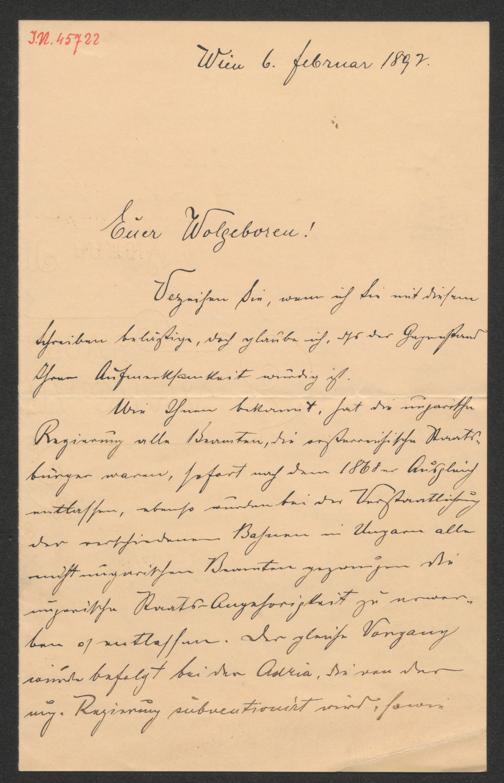 I.N. 45722
Wien 6. februar 1892.
Euer Wolgeboren!
Verzeihen Sie, wenn ich Sie mit diesem
Schreiben belästige, doch glaube ich, dß der Gegenstand
Ihrer Aufmerksamkeit würdig ist.
Wie Ihnen bekannt, hat die ungarische
Regierung alle Beamten, die österreichische Staats-
bürger waren, sofort nach dem 1868er Ausgleich
entlassen, ebenso wurden bei der Verstaatlichung
der verschiedenen Bahnen in Ungarn alle
nicht ungarischen Beamten gezwungen die
ungarische Staats-Angehörigkeit zu erwer-
ben od entlassen. Der gleiche Vorgang
wurde befolgt bei der Adria, die von der
ung. Regierung subventionirt wird, sowie